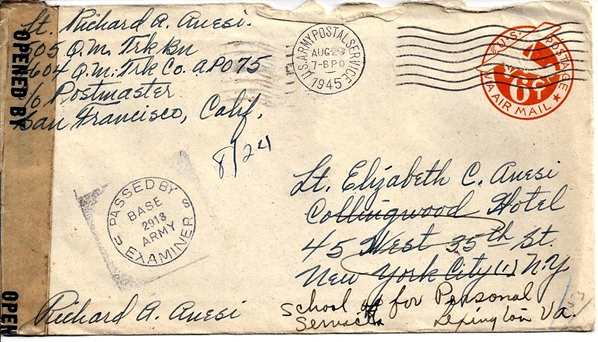 Lt. Richard A. Anesi.
505 Q.M. Trk Bn
3604 Q.M. Trk Co. APO 75
c/o Postmaster
San Francisco, Calif.
8/24
OPENED BY
U.S. ARMY POSTAL SERVICE
AUG 25
7-8 PM
1945
U.S. POSTAGE
6¢
VIA AIR MAIL
PASSED BY
BASE
2918
ARMY
EXAMINER
U S
Lt. Elizabeth C. Anesi
Collingwood Hotel
45 West 35th St.
New York City (1) N.Y.
School for Personal
Services Lexington Va.
OPEN
Richard A. Anesi